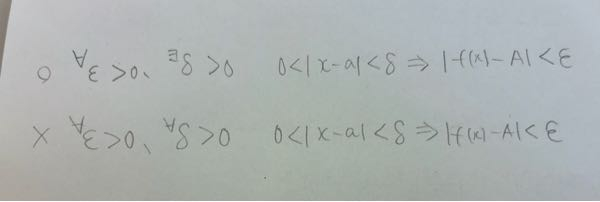 ○ ∀ε>0、∃δ>0 0<|x-a|<δ⇒|f(x)-A|<ε
× ∀ε>0、∀δ>0 0<|x-a|<δ⇒|f(x)-A|<ε